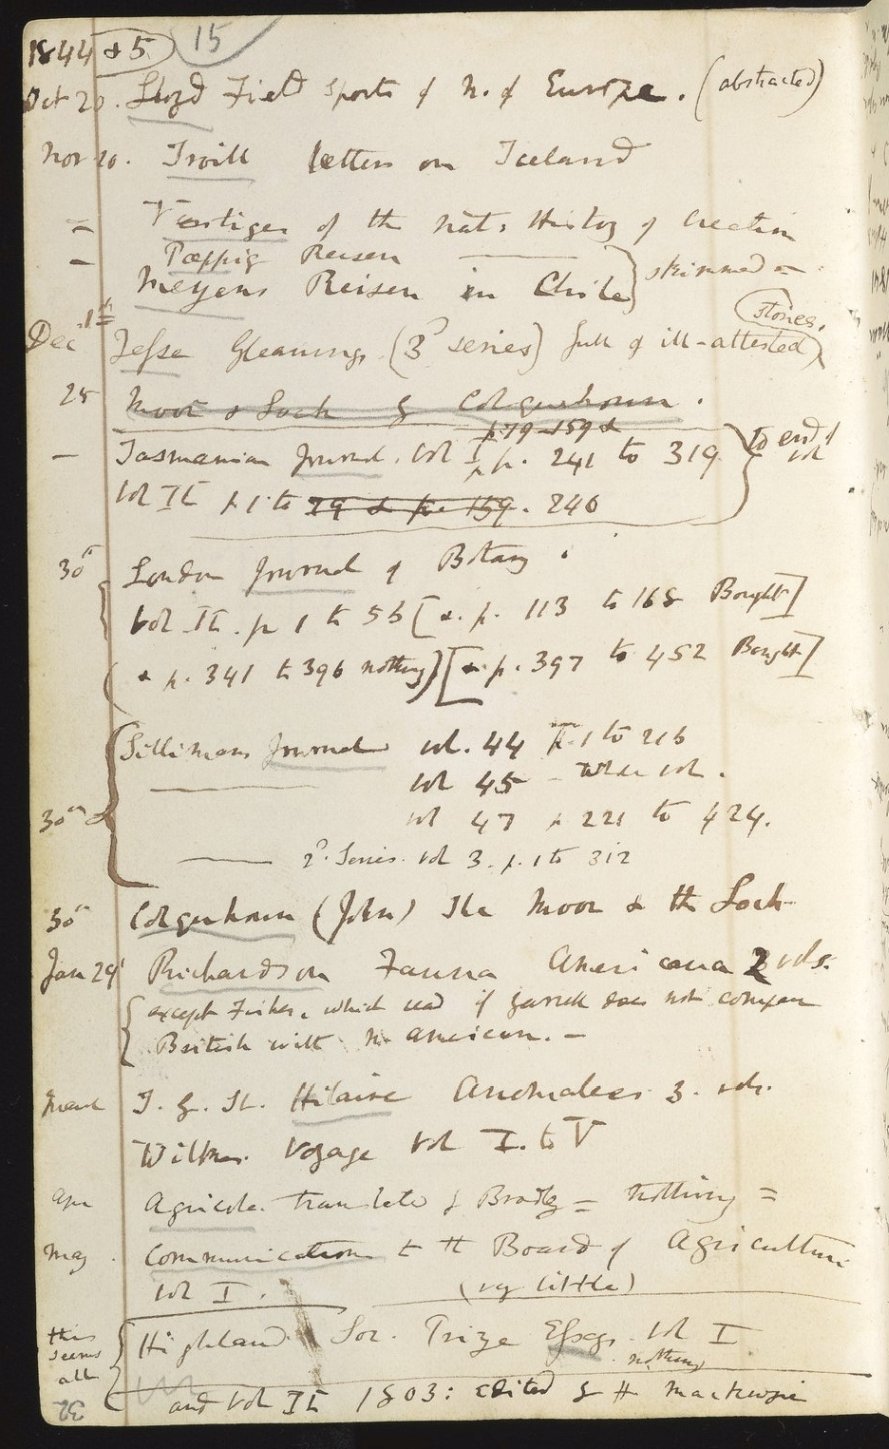 1844 & 5 15
Oct 20. Lloyd Field Sports of N. of Europe. (abstracted)
Nov 10. Troill letters on Iceland
— Vestiges of the Nat. History of Creation
— Pœppig Reisen ——— } skimmed —
Meyens Reisen in Chile
Dec 1st Jesse Gleanings (3d series) full of ill-attested stories.
25 Moor & Loch by Colquhoun.
p. 79–159 &
— Tasmanian Journal. vol I p. 241 to 319 to end of vol
vol II p 1 to 79 & p. 159. 246
30th London Journal of Botany
vol II. p 1 to 56 [&. p. 113 to 168 Bought]
(& p. 341 to 396 nothing) [& p. 397 to 452 Bought]
Sillimans Journal vol. 44 p. 1 to 216
——— vol 45 – whole vol.
30th & vol 47 p 221 to 424.
——— 2d. Series. vol 3. p. 1 to 312
30th Colquhoun (John) The Moor & the Loch
Jan 29th Richardson Fauna Americana 2 vols.
except Fishes, which read if Yarrell does not compare
British with N. American. —
March I. G. St. Hilaire Anomalies 3. vols.
Wilkes. Voyage vol I. to V
Apr Agricola. translated by Bradley = nothing =
May. Communications to the Board of Agriculture
vol I. (very little)
this seems all Highland Soc. Prize Essays. vol I
nothing
and vol II 1803: edited by H Mackenzie